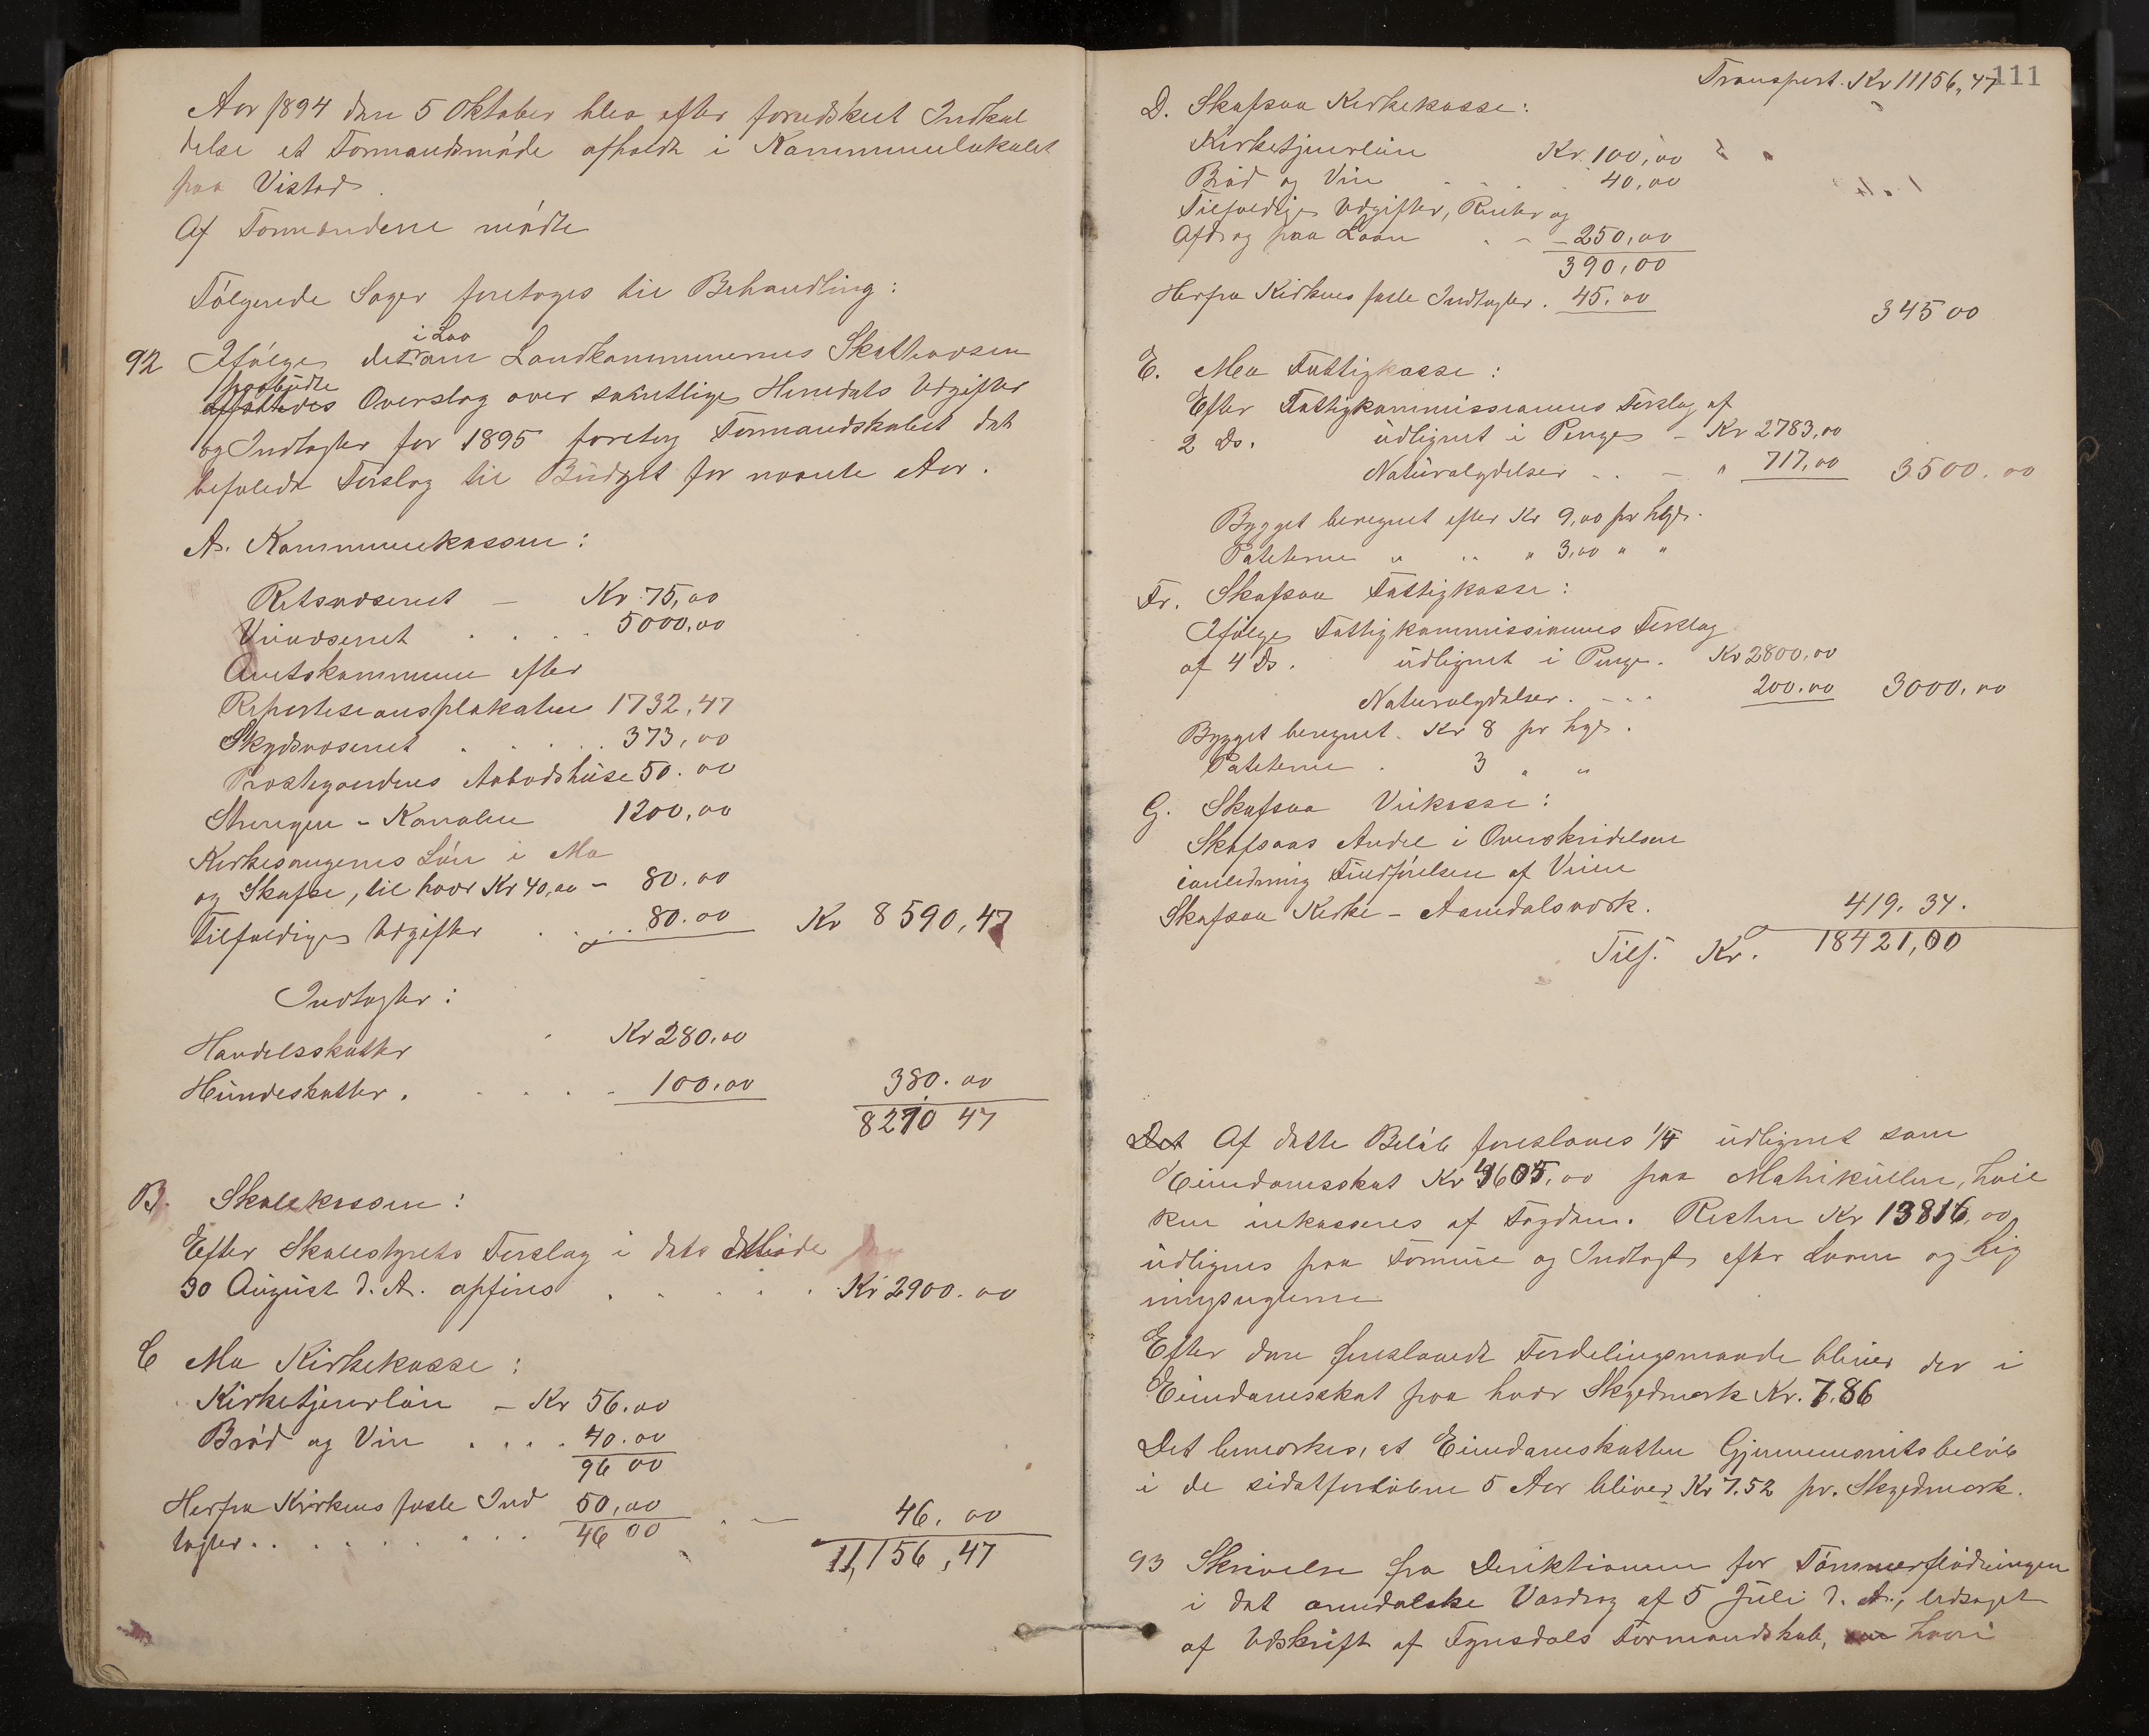 Aar 1894 den 5 Oktober blev efter forudskeet Indkal
delse et Formandsmøde afholdt i Kommunelokalet
paa Vistad.
Af Formændene mødte
Følgende Sager foretoges til Behandling:
i Lov
92 Ifølge det om Landkommunernes Skattevæsen
paabudte
affattedes Overslag over samtlige Herredets Udgifter
og Indtægter for 1895 foretog Formandskabet det
befalede Forslag til Budget for nævnte Aar.
A. Kommunekassen:
Retsvæsenet - Kr 75,00
Veivæsenet . . . . 5000,00
Amtskommune efter
Repartisionsplakaten 1732,47
Skydsvæsenet . . . . 373,00
Prostegaardens Aabodshuse 50.00
Strengen - Kanalen 1200,00
Kirkesangernes Løn i Mo
og Skafse, til hver Kr 40,00 - 80.00
Tilfældige Udgifter . . . . 80.00 Kr 8590,47
Indtægter:
Handelsskatter Kr 280.00
Hundeskatter . . . . . 100.00 380.00
8210 47
B. Skolekassen:
Efter Skolestyrets Forslag i dets Møde
30 August d. A. opføres . . . . . Kr 2900.00
C Mo Kirkekasse:
Kirketjenerløn - Kr 56.00
Brød og Vin . . . . 40.00
96 00
Herfra Kirkens faste Ind 50,00
tægter . . . . . . 46 00 . — 46.00
11,156,47
Transport. Kr 11156,47 111
D. Skafsaa Kirkekasse:
Kirketjenerløn Kr. 100,00
Brød og Vin . . . . 40,00
Tilfældige Udgifter, Renter og
Afdrag paa Laan . - - 250,00
390,00
Herfra Kirkens faste Indtægter . 45.00
345 00
E. Mo Fattigkasse:
Efter Fattigkommissionens Forslag af
2 Ds. udlignet i Penge - Kr 2783,00
Naturalydelser - . - " 717,00 3500.00
Bygget beregnet efter Kr 9,00 pr hgd.
Poteterne " " " 3,00 " "
Fr. Skafsaa Fattigkasse:
Ifølge Fattigkommissionens Forslag
af 4 Ds. udlignet i Penge. Kr 2800,00
Naturalydelser . - . . 200.00 3000.00
Bygget beregnet. Kr 8 pr hgd.
Poteterne . 3 " "
G. Skafsaa Veikasse:
Skafsaas Andel i Overskridelsen
ianledning Fuldførelsen af Veien
Skafsaa Kirke - Aamdalsværk. 419.34.
Tils. Kr. 18421,00
Det Af dette Beløb foreslaaes 1/4 udlignet som
Eiendomsskat Kr 4605,00 paa Matrikullen, hvil
ken inkasseres af Fogden. Resten Kr 13816,00
udlignes paa Formue og Indtægt efter Loven og Lig
ningsreglerne
Efter den foreslaaede Fordelingsmaade bliver der i
Eiendomsskat paa hver Skyldmark Kr. 7.86
Det bemærkes, at Eiendomsskatten Gjennemsnitsbeløb
i de sidstforløbne 5 Aar bliver Kr 7.52 pr. Skyldmark.
93 Skrivelse fra Direktionen for Tømmerflødningen
i det arendalske Vasdrag af 5 Juli d. A., ledsaget
af Udskrift af Fyresdals Formandskab, hvori